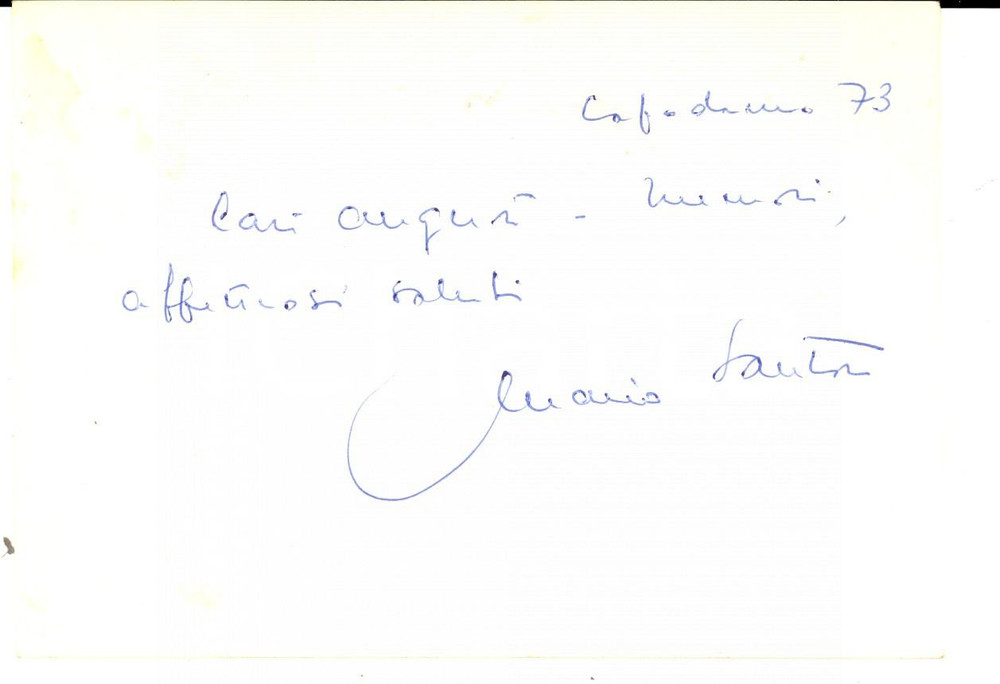 Capodanno 73
Cari auguri - numerosi,
affettuosi saluti
Mario Santoro